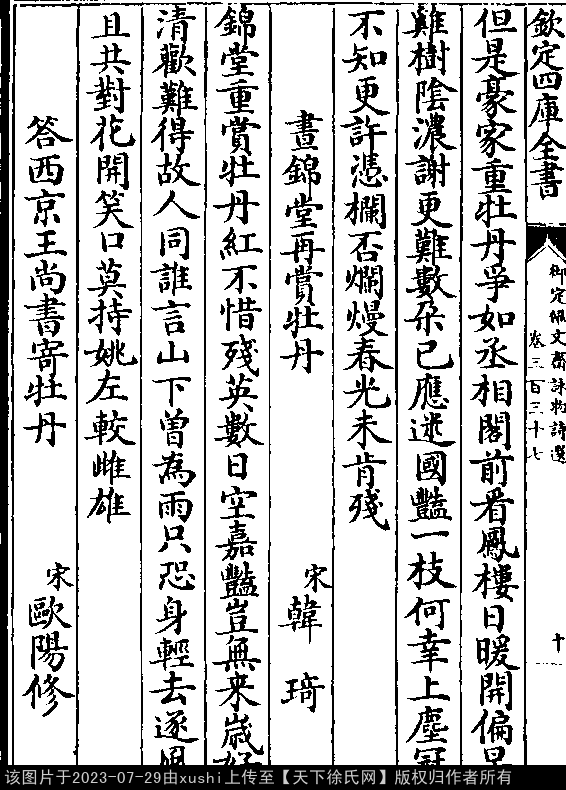 欽定四庫全書
御定佩文齋詠物詩選
卷三百三十七
十
但是豪家重牡丹爭如丞相閣前看鳳樓日暖開偏早
雞樹陰濃謝更難數朶已應迷國豔一枝何幸上塵冠
不知更許憑欄否爛熳春光未肯殘
晝錦堂再賞牡丹
宋韓琦
錦堂重賞牡丹紅不惜殘英數日空嘉豔豈無来歲好
清歡難得故人同誰言山下曽為雨只恐身輕去逐風
且共對花開笑口莫持姚左較雌雄
答西京王尚書寄牡丹
宋歐陽修
该图片于2023-07-29由xushi上传至【天下徐氏网】版权归作者所有